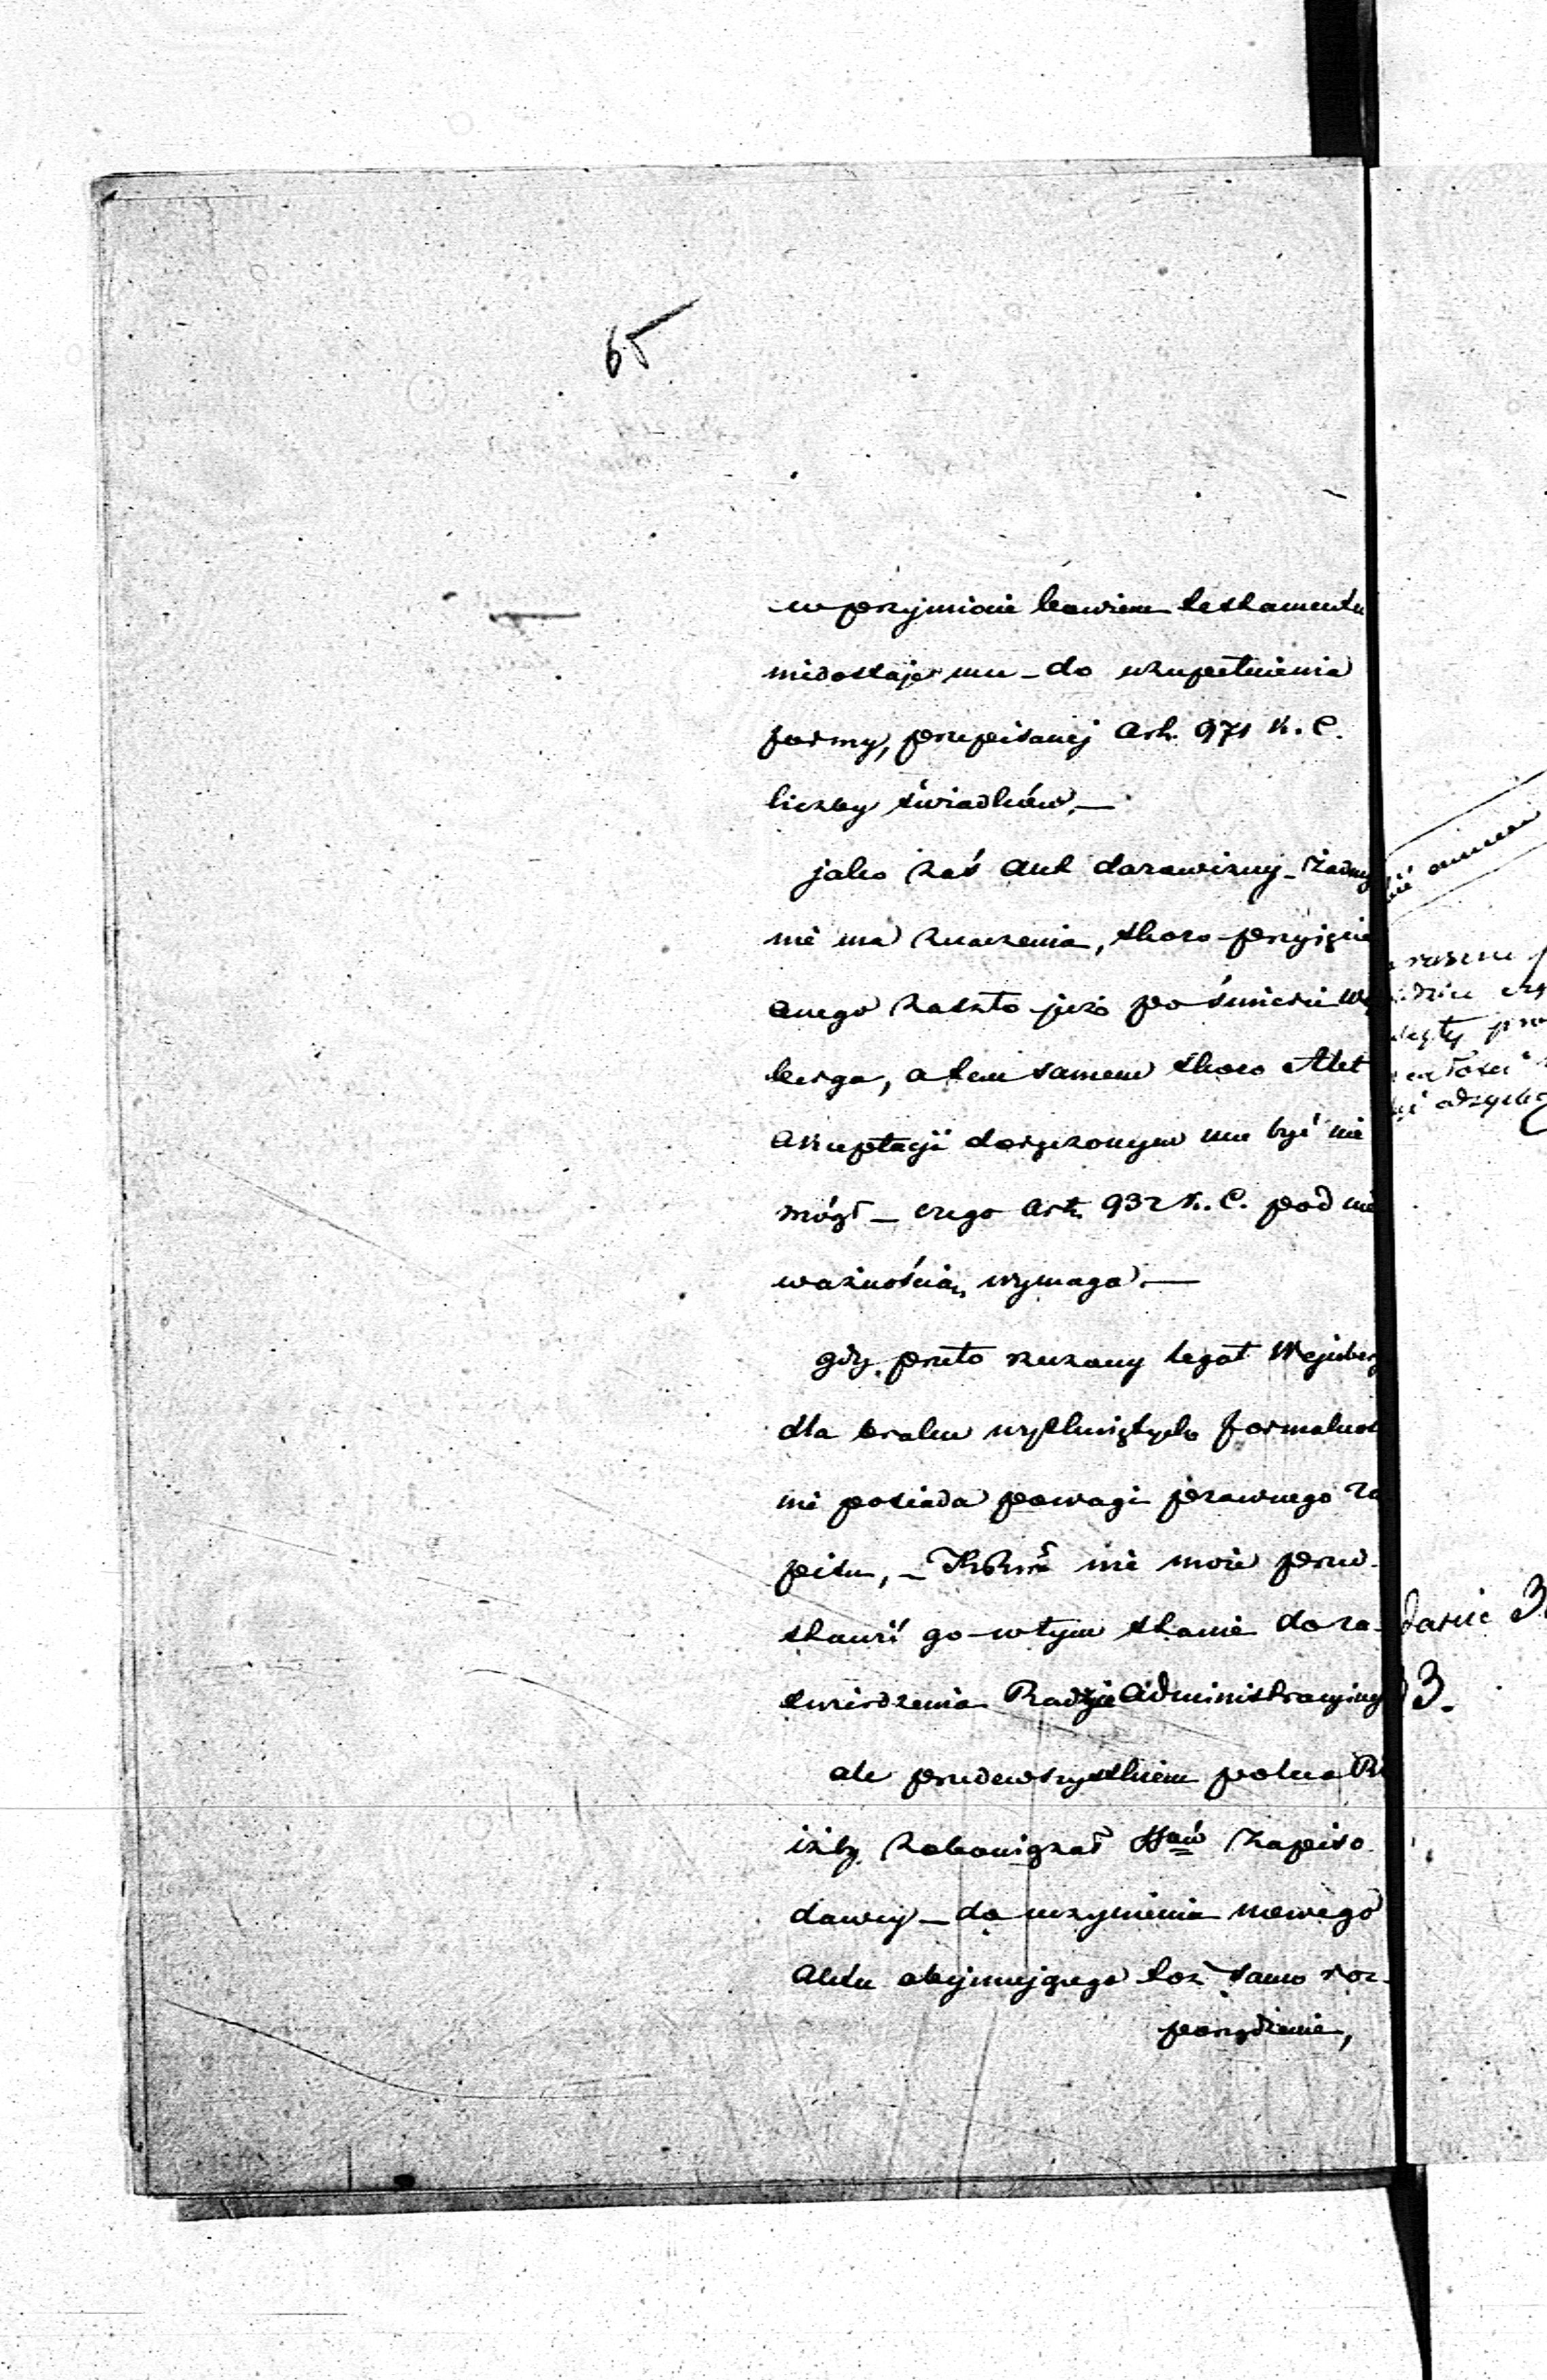 65
w przymiocie bowiem testamentu
niedostaje mu – do uzupełnienia
formy, przepisanej Art. 971 K. C.
liczby świadków. –
jako zaś Akt darowizny – żadnego
nie ma znaczenia, skoro przyjęcie
onego zaszło już po śmierci
berga, a tem samem skoro Akt
Akceptacji doręczonym mu być nie
mógł – czego Art. 932 K. C. pod nie
ważnością, wymaga. –
gdy przeto rzeczony legat Wejnberg
dla braku wytkniętych formalnoś
nie posiada powagi prawnego za
pisu, – nie może przed-
stawić go w tym stanie do za-
twierdzenia Radzie Administracyjnej
ale przedewszystkiem poleca
iżby zobowiązał Zapiso
dawcy – do uczynienia nowego
Aktu obejmującego toż samo roz-
porządzenie,
darie 3.
3.